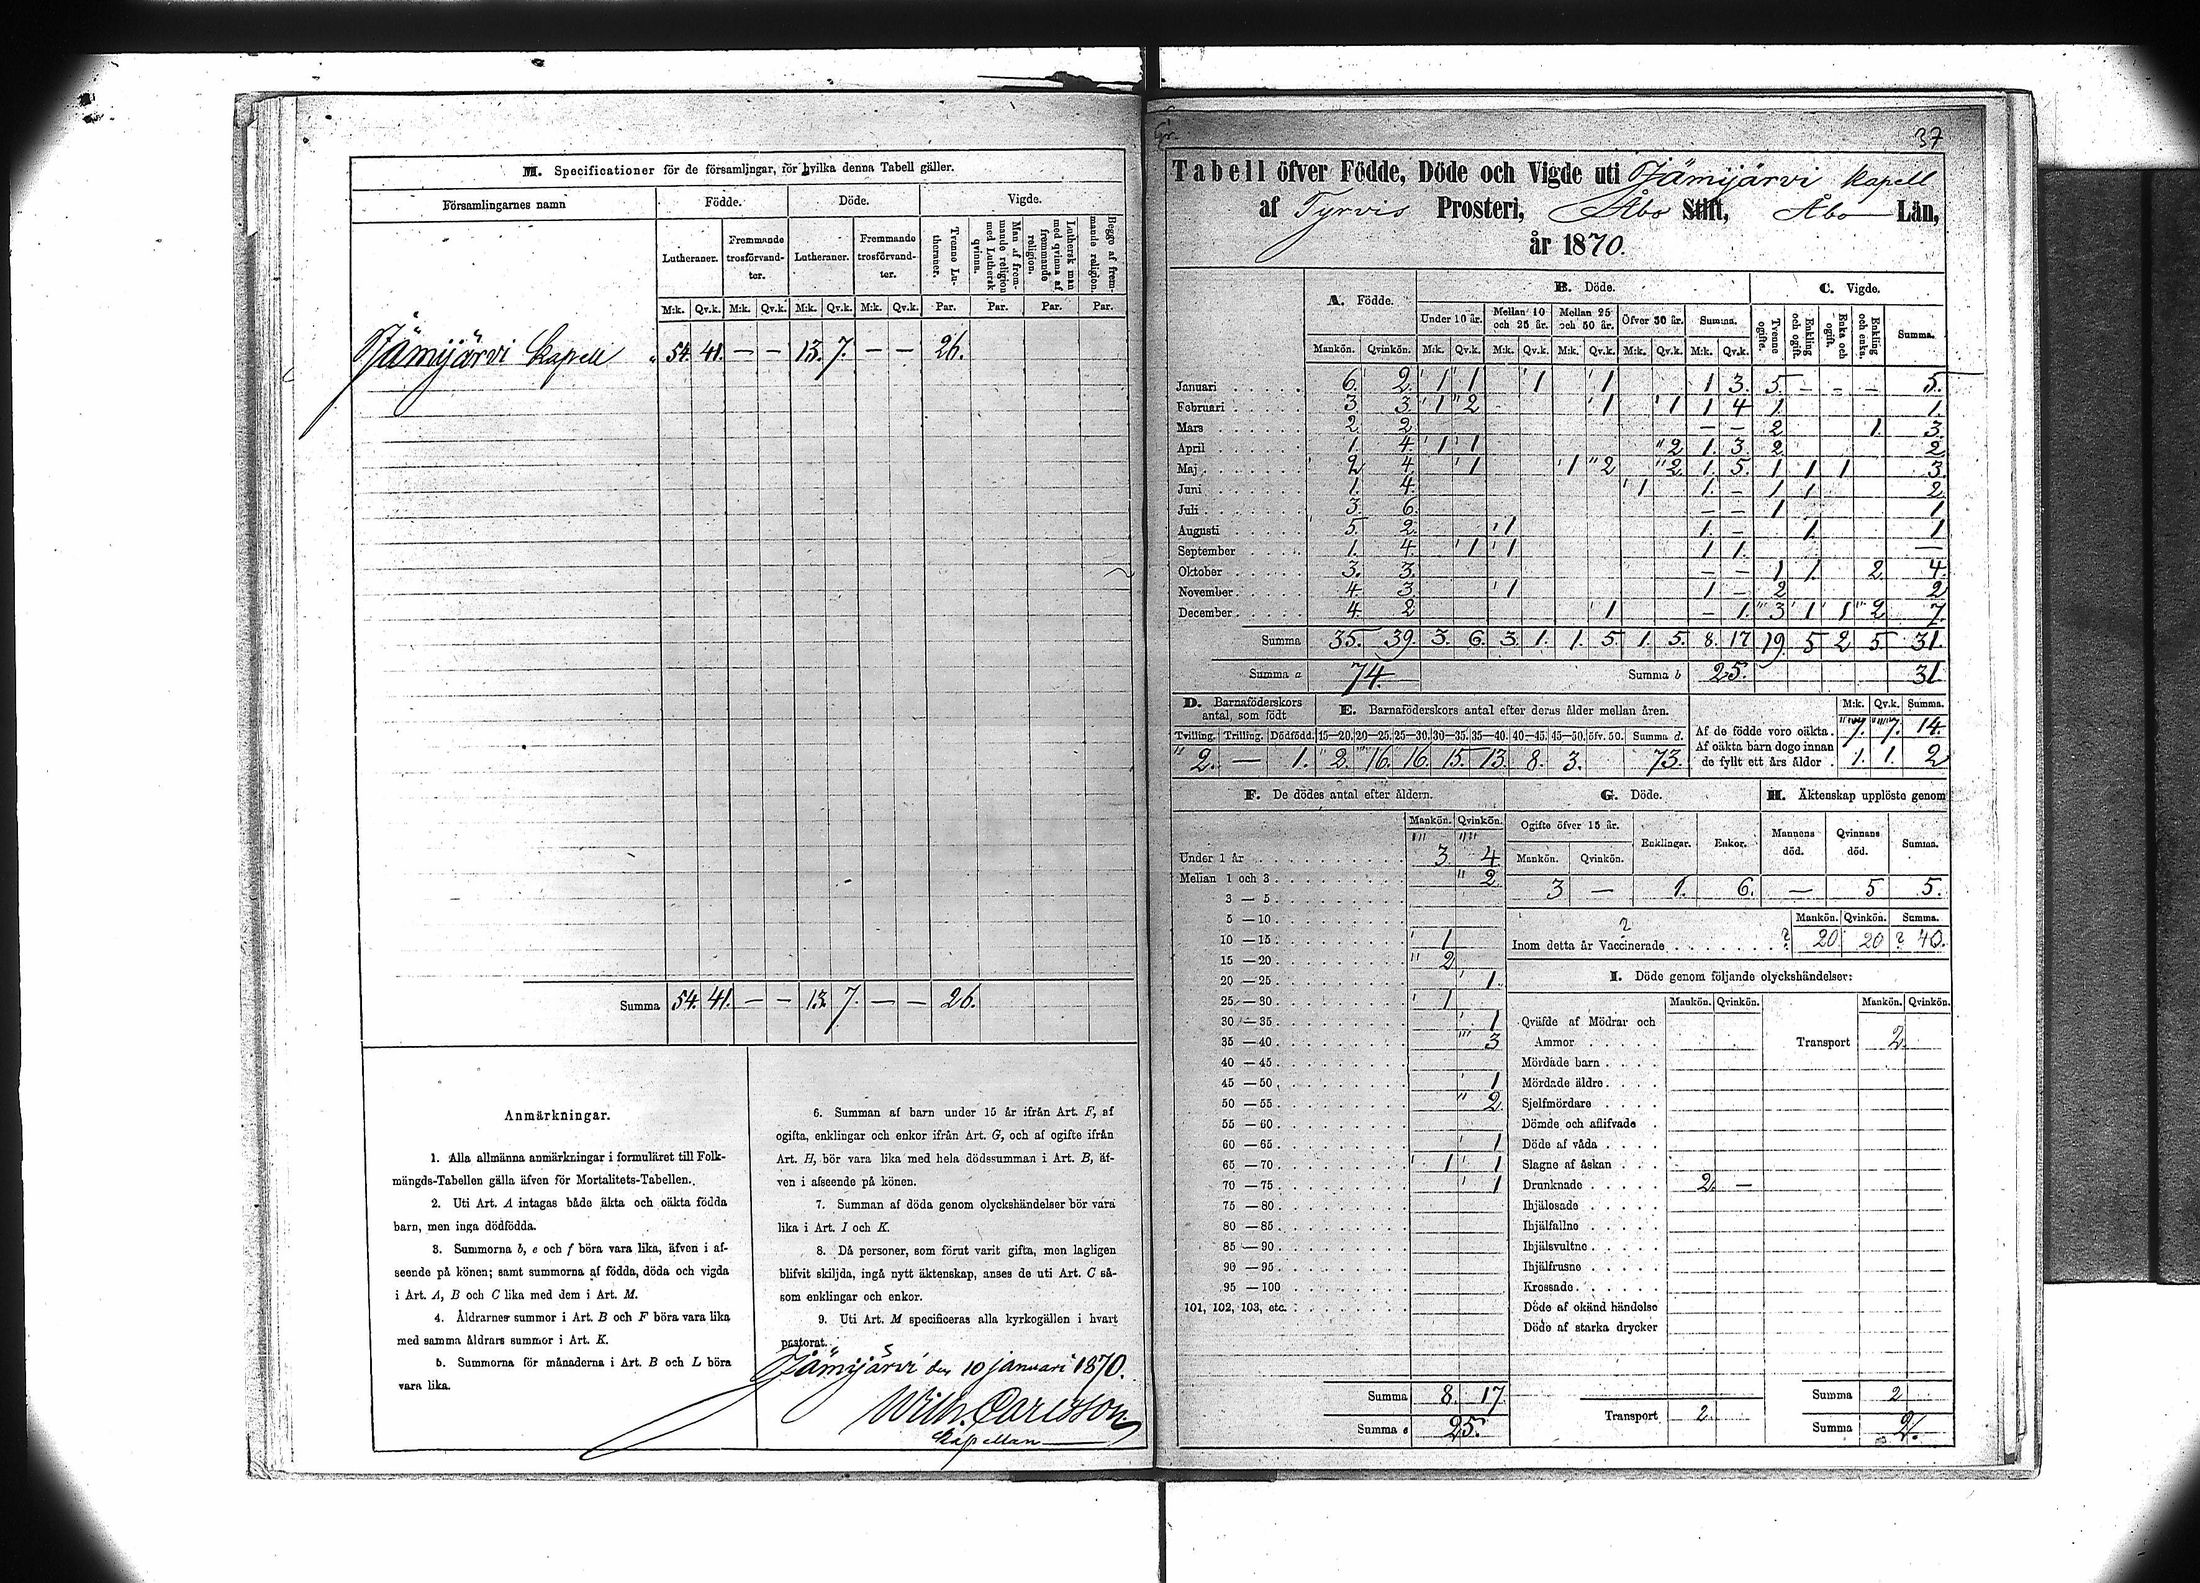 M. Specificationer för de församlingar, för hvilka denna Tabell gäller.
Församlingarnes namn Födde. Döde. Vigde.
Lutheraner. Fremmande trosförvandter. Lutheraner. Fremmande trosförvandter. Tvenne Lutheraner. Man af fremmande religion med Luthersk qvinna. Luthersk man med qvinna af fremmande religion. Begge af fremmande religion.
M:k. Qv.k. M:k. Qv.k. M:k. Qv.k. M:k. Qv.k. Par. Par. Par. Par.
Jämijärvi kapell 54. 41. — — 13. 7. — — 26.
Summa 54. 41. — — 13. 7. — — 26.
Anmärkningar.
1. Alla allmänna anmärkningar i formuläret till Folk-
mängds-Tabellen gälla äfven för Mortalitets-Tabellen.
2. Uti Art. A intagas både äkta och oäkta födda
barn, men inga dödfödda.
3. Summorna b, e och f böra vara lika, äfven i af-
seende på könen; samt summorna af födda, döda och vigda
i Art. A, B och C lika med dem i Art. M.
4. Åldrarnes summor i Art. B och F böra vara lika
med samma åldrars summor i Art. K.
5. Summorna för månaderna i Art. B och L böra
vara lika.
6. Summan af barn under 15 år ifrån Art. F, af
ogifta, enklingar och enkor ifrån Art. G, och af ogifte ifrån
Art. H, bör vara lika med hela dödssumman i Art. B, äf-
ven i afseende på könen.
7. Summan af döda genom olyckshändelser bör vara
lika i Art. I och K.
8. Då personer, som förut varit gifta, men lagligen
blifvit skiljda, ingå nytt äktenskap, anses de uti Art. C så-
som enklingar och enkor.
9. Uti Art. M specificeras alla kyrkogällen i hvart
pastorat.
Jämijärvi den 10 januari 1870.
Wilh. Carlsson
kapellan
37
Tabell öfver Födde, Döde och Vigde uti Jämijärvi kapell
af Tyrvis Prosteri, Åbo Stift, Åbo Län,
år 1870.
A. Födde. B. Döde. C. Vigde.
Under 10 år. Mellan 10 och 25 år. Mellan 25 och 50 år. Öfver 50 år. Summa. Tvenne ogifte. Enkling och ogift. Enka och ogift. Enkling och enka. Summa.
Mankön. Qvinkön. M:k. Qv.k. M:k. Qv.k. M:k. Qv.k. M:k. Qv.k. M:k. Qv.k.
Januari 6. 2. 1 1 1 1 1 3. 5 — — — 5.
Februari 3. 3. 1 2 1 1 1 4 1 1.
Mars 2. 2 — — 2 1. 3.
April 1. 4. 1 1 2 1. 3. 2 2
Maj 2 4. 1 1 2 2 1. 5. 1 1 1 3.
Juni 1. 4. 1 1. — 1 1 2
Juli 3. 6. — — 1 1
Augusti 5 2. 1 1. — 1 1
September 1. 4. 1 1 1 1. —
Oktober 3. 3. — — 1 1. 2 4.
November 4. 3. 1 1 — 2 2
December 4. 2 1 — 1. 3 1 1 2 7.
Summa 35. 39. 3. 6. 3. 1. 1. 5. 1. 5. 8. 17 19. 5 2 5. 31.
Summa a 74. Summa b 25. 31
D. Barnaföderskors antal, som födt E. Barnaföderskors antal efter deras ålder mellan åren. M:k. Qv.k. Summa.
Tvilling. Trilling. Dödfödd. 15—20. 20—25. 25—30. 30—35. 35—40. 40—45. 45—50. öfv. 50. Summa d.
Af de födde voro oäkta. 7. 7. 14.
Af oäkta barn dogo innan
de fyllt ett års ålder. 1. 1. 2
2. — 1. 2. 16. 16. 15. 13. 8. 3. 73.
F. De dödes antal efter åldern. G. Döde. H. Äktenskap upplöste genom
Mankön. Qvinkön. Ogifte öfver 15 år. Enklingar. Enkor. Mannens död. Qvinnans död. Summa.
Mankön. Qvinkön.
3 — 1. 6. — 5 5.
Under 1 år 3. 4.
Mellan 1 och 3 2.
3 — 5
5 — 10
10 — 15 1
15 — 20 2
20 — 25 1.
25 — 30 1
30 — 35 1
35 — 40 3
40 — 45
45 — 50 1
50 — 55 2.
55 — 60
60 — 65 1
65 — 70 1 1
70 — 75 1
75 — 80
80 — 85
85 — 90
90 — 95
95 — 100
101, 102, 103, etc.
Summa 8. 17.
Summa e 25.
Mankön. Qvinkön. Summa.
Inom detta år Vaccinerade ? 20 20 ? 40.
I. Döde genom följande olyckshändelser:
Mankön. Qvinkön. Mankön. Qvinkön.
Qväfde af Mödrar och
Ammor
Mördade barn
Mördade äldre
Sjelfmördare
Dömde och aflifvade
Döde af våda
Slagne af åskan
Drunknade 2. —
Ihjälosade
Ihjälfallne
Ihjälsvultne
Ihjälfrusne
Krossade
Döde af okänd händelse
Döde af starka drycker
Transport 2.
Transport 2.
Summa 2
Summa 2.